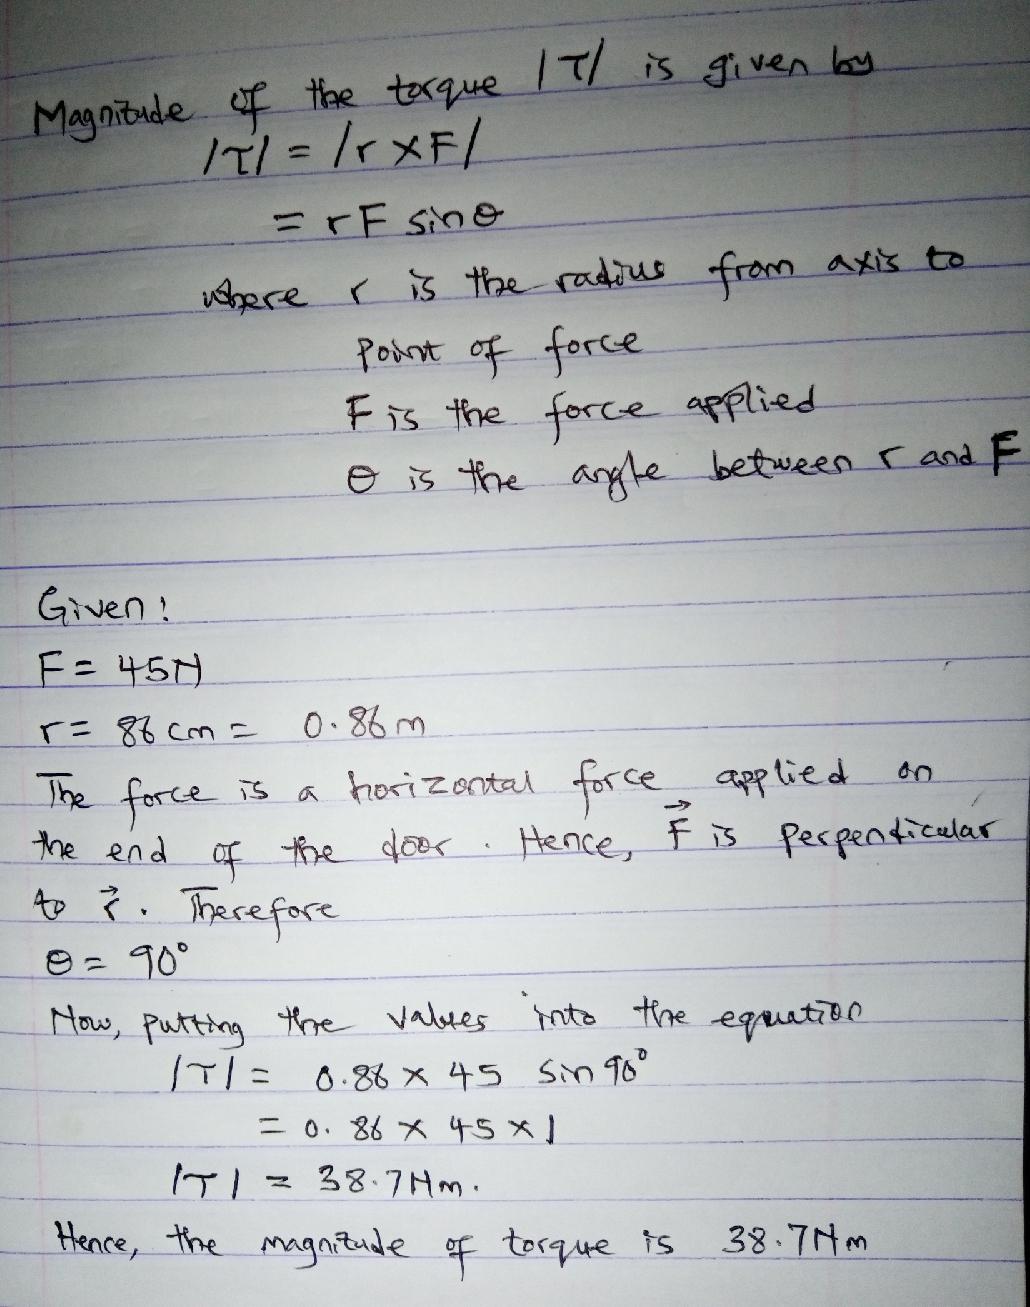 Magnitude of the torque |τ| is given by
|τ| = |r × F|
= rF sin θ
where r is the radius from axis to
point of force
F is the force applied
θ is the angle between r and F
Given:
F = 45N
r = 86 cm = 0.86 m
The force is a horizontal force applied on
the end of the door. Hence, F⃗ is perpendicular
to r⃗. Therefore
θ = 90°
Now, putting the values into the equation
|τ| = 0.86 × 45 sin 90°
= 0.86 × 45 × 1
|τ| = 38.7Nm.
Hence, the magnitude of torque is 38.7Nm